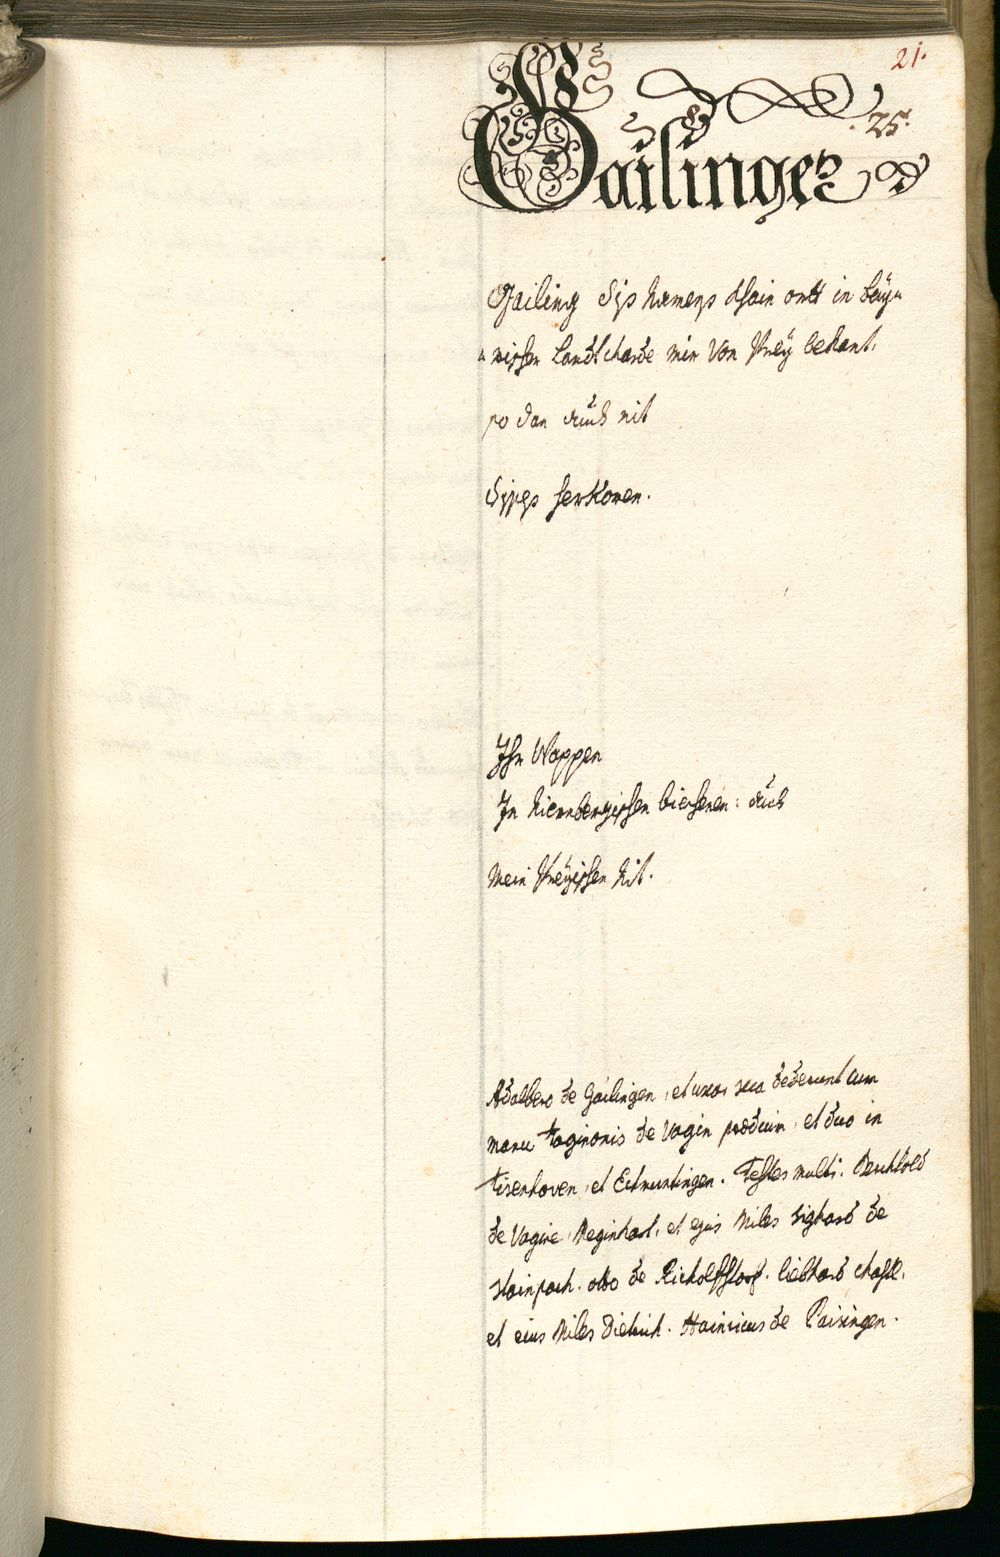 21.
25.
Gailinger
Gailing diss namens khain ortt in bayr
rischen Landtcharte mir von Preÿ bekant.
so dan auch nit
dises herkomen.
Ihr Wappen
In Niernbergischen biechern: auch
Mein Preÿischen Nit.
Adalbero de Gailingen, et uxor sua dederunt cum
manu Taginonis de Vagin praedium, et duo in
Tisenhoven, et Eitmuntingen. Testes multi. Perchtold
de Vagire, Reginhart, et ejus Miles Sighard de
Stainpach. Otto de Richolfstorf. Liebhard chastl.
et eius Miles Dietrich. Hainricus de Paisingen.